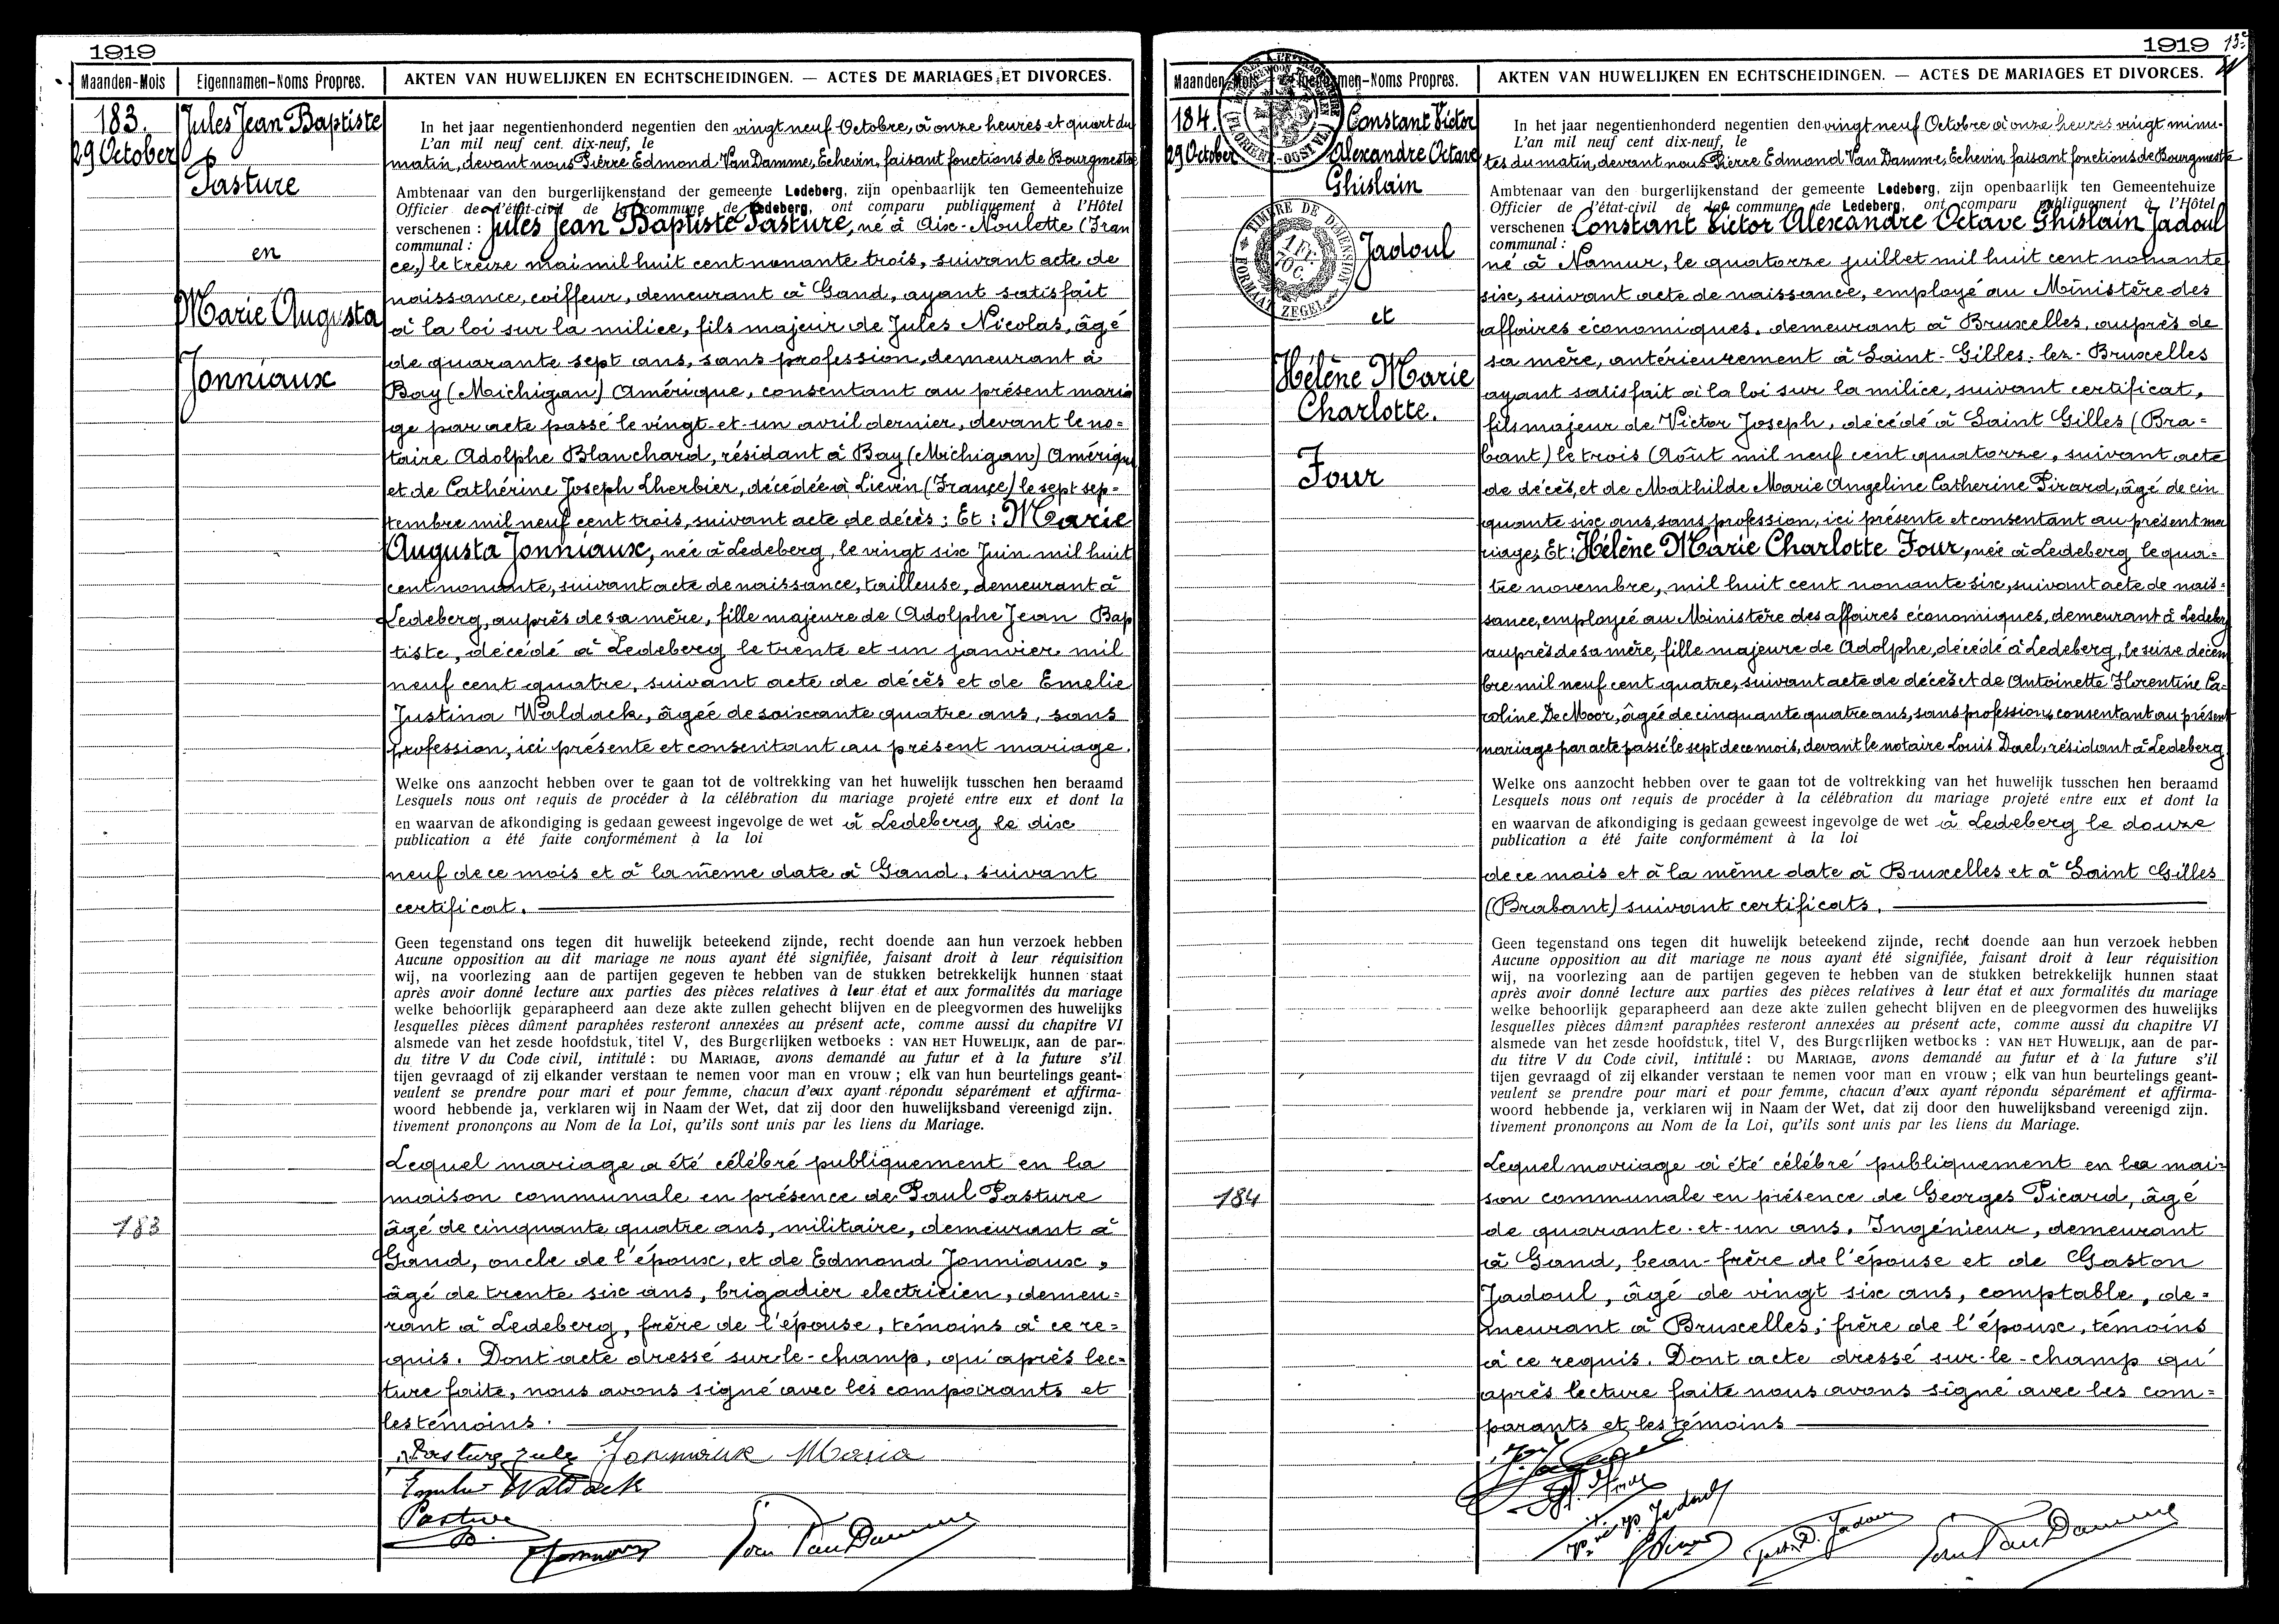 1919
Maanden-Mois Eigennamen-Noms Propres. AKTEN VAN HUWELIJKEN EN ECHTSCHEIDINGEN. — ACTES DE MARIAGES ET DIVORCES.
183.
29 October
Jules Jean Baptiste
Pasture
en
Marie Augusta
Jonniaux
In het jaar negentienhonderd negentien den vingt neuf Octobre, à onze heures et quart du
L'an mil neuf cent dix-neuf, le
matin, devant nous Pierre Edmond Van Damme, Echevin, faisant fonctions de Bourgmestre
Ambtenaar van den burgerlijkenstand der gemeente Ledeberg, zijn openbaarlijk ten Gemeentehuize
Officier de l'état-civil de la commune de Ledeberg, ont comparu publiquement à l'Hôtel
verschenen : Jules Jean Baptiste Pasture, né à Aix-Noulette (Fran
communal :
ce,) le treize mai mil huit cent nonante trois, suivant acte de
naissance, coiffeur, demeurant à Gand, ayant satisfait
à la loi sur la milice, fils majeur de Jules Nicolas, âgé
de quarante sept ans, sans profession, demeurant à
Bay (Maichigan) Amérique, consentant au présent maria
ge par acte passé le vingt-et-un avril dernier, devant le no=
taire Adolphe Blanchard, résidant à Bay (Michigan) Amérique
et de Cathérine Joseph Lherbier, décédée à Lievin (France) le sept sep=
tembre mil neuf cent trois, suivant acte de décès; Et : Marie
Augusta Jonniaux, née à Ledeberg, le vingt six Juin mil huit
cent nonante, suivant acte de naissance, tailleuse, demeurant à
Ledeberg, auprès de sa mère, fille majeure de Adolphe Jean Bap
tiste, décédé à Ledeberg le trente et un janvier mil
neuf cent quatre, suivant acte de décès et de Emelie
Justina Waldack, âgée de soixante quatre ans, sans
profession, ici présente et consentant au présent mariage.
Welke ons aanzocht hebben over te gaan tot de voltrekking van het huwelijk tusschen hen beraamd
Lesquels nous ont requis de procéder à la célébration du mariage projeté entre eux et dont la
en waarvan de afkondiging is gedaan geweest ingevolge de wet à Ledeberg le dix
publication a été faite conformément à la loi
neuf de ce mois et à la même date à Gand, suivant
certificat.
Geen tegenstand ons tegen dit huwelijk beteekend zijnde, recht doende aan hun verzoek hebben
Aucune opposition au dit mariage ne nous ayant été signifiée, faisant droit à leur réquisition
wij, na voorlezing aan de partijen gegeven te hebben van de stukken betrekkelijk hunnen staat
après avoir donné lecture aux parties des pièces relatives à leur état et aux formalités du mariage
welke behoorlijk geparapheerd aan deze akte zullen gehecht blijven en de pleegvormen des huwelijks
lesquelles pièces dûment paraphées resteront annexées au présent acte, comme aussi du chapitre VI
alsmede van het zesde hoofdstuk, titel V, des Burgerlijken wetboeks : VAN HET HUWELIJK, aan de par-
du titre V du Code civil, intitulé : DU MARIAGE, avons demandé au futur et à la future s'il
tijen gevraagd of zij elkander verstaan te nemen voor man en vrouw ; elk van hun beurtelings geant-
veulent se prendre pour mari et pour femme, chacun d'eux ayant répondu séparément et affirma-
woord hebbende ja, verklaren wij in Naam der Wet, dat zij door den huwelijksband vereenigd zijn.
tivement prononçons au Nom de la Loi, qu'ils sont unis par les liens du Mariage.
183
Lequel mariage a été célébré publiquement en la
maison communale en présence de Paul Pasture
âgé de cinquante quatre ans, militaire, demeurant à
Gand, oncle de l'époux, et de Edmond Jonniaux,
âgé de trente six ans, brigadier electricien, demeu=
rant à Ledeberg, frère de l'épouse, témoins à ce re=
quis. Dont acte dressé sur-le-champ, qu'après lec=
ture faite, nous avons signé avec les comparants et
les témoins.
Pasture Jules Jonniaux Maria
Waldack
Pasture
Van Damme
1919
Maanden-Mois Eigennamen-Noms Propres. AKTEN VAN HUWELIJKEN EN ECHTSCHEIDINGEN. — ACTES DE MARIAGES ET DIVORCES.
184.
29 October
Constant Victor
Alexandre Octave
Ghislain
Jadoul
et
Hélène Marie
Charlotte.
Four
TIMBRE DE DIMENSION
ZEGEL
In het jaar negentienhonderd negentien den vingt neuf Octobre à onze heures vingt minu-
L'an mil neuf cent dix-neuf, le
tes du matin, devant nous Pierre Edmond Van Damme, Echevin faisant fonctions de Bourgmestre
Ambtenaar van den burgerlijkenstand der gemeente Ledeberg, zijn openbaarlijk ten Gemeentehuize
Officier de l'état-civil de la commune de Ledeberg, ont comparu publiquement à l'Hôtel
verschenen Constant Victor Alexandre Octave Ghislain Jadoul
communal :
né à Namur, le quatorze juillet mil huit cent nonante
six, suivant acte de naissance, employé au Ministère des
affaires économiques, demeurant à Bruxelles, auprès de
sa mère, antérieurement à Saint-Gilles-lez-Bruxelles
ayant satisfait à la loi sur la milice, suivant certificat,
fils majeur de Victor Joseph, décédé à Saint Gilles (Bra=
bant) le trois Août mil neuf cent quatorze, suivant acte
de décès, et de Mathilde Marie Angeline Catherine Pirard, âgé de cin
quante six ans, sans profession, ici présente et consentant au présent ma
riage; Et : Hélène Marie Charlotte Four, née à Ledeberg le qua=
tre novembre, mil huit cent nonante six, suivant acte de nais=
sance, employeé au Ministère des affaires économiques, demeurant à Ledeberg
auprès de sa mère, fille majeure de Adolphe, décédé à Ledeberg, le seize décem
bre mil neuf cent quatre, suivant acte de décès et de Antoinette Florentine Ca=
roline De Moor, âgée de cinquante quatre ans, sans profession, consentant au présent
mariage par acte passé le sept de ce mois, devant le notaire Louis Dael, résidant à Ledeberg
Welke ons aanzocht hebben over te gaan tot de voltrekking van het huwelijk tusschen hen beraamd
Lesquels nous ont requis de procéder à la célébration du mariage projeté entre eux et dont la
en waarvan de afkondiging is gedaan geweest ingevolge de wet à Ledeberg le douze
publication a été faite conformément à la loi
de ce mois et à la même date à Bruxelles et à Saint Gilles
(Brabant) suivant certificats.
Geen tegenstand ons tegen dit huwelijk beteekend zijnde, recht doende aan hun verzoek hebben
Aucune opposition au dit mariage ne nous ayant été signifiée, faisant droit à leur réquisition
wij, na voorlezing aan de partijen gegeven te hebben van de stukken betrekkelijk hunnen staat
après avoir donné lecture aux parties des pièces relatives à leur état et aux formalités du mariage
welke behoorlijk geparapheerd aan deze akte zullen gehecht blijven en de pleegvormen des huwelijks
lesquelles pièces dûment paraphées resteront annexées au présent acte, comme aussi du chapitre VI
alsmede van het zesde hoofdstuk, titel V, des Burgerlijken wetboeks : VAN HET HUWELIJK, aan de par-
du titre V du Code civil, intitulé : DU MARIAGE, avons demandé au futur et à la future s'il
tijen gevraagd of zij elkander verstaan te nemen voor man en vrouw ; elk van hun beurtelings geant-
veulent se prendre pour mari et pour femme, chacun d'eux ayant répondu séparément et affirma-
woord hebbende ja, verklaren wij in Naam der Wet, dat zij door den huwelijksband vereenigd zijn.
tivement prononçons au Nom de la Loi, qu'ils sont unis par les liens du Mariage.
184
Lequel mariage a été célébré publiquement en la mai=
son communale en présence de Georges Picard, âgé
de quarante-et-un ans, Ingénieur, demeurant
à Gand, beau-frère de l'épouse et de Gaston
Jadoul, âgé de vingt six ans, comptable, de=
meurant à Bruxelles, frère de l'époux, témoins
à ce requis. Dont acte dressé sur-le-champ qu'
après lecture faite nous avons signé avec les com=
parants et les témoins
Jadoul
Jadoul
Van Damme